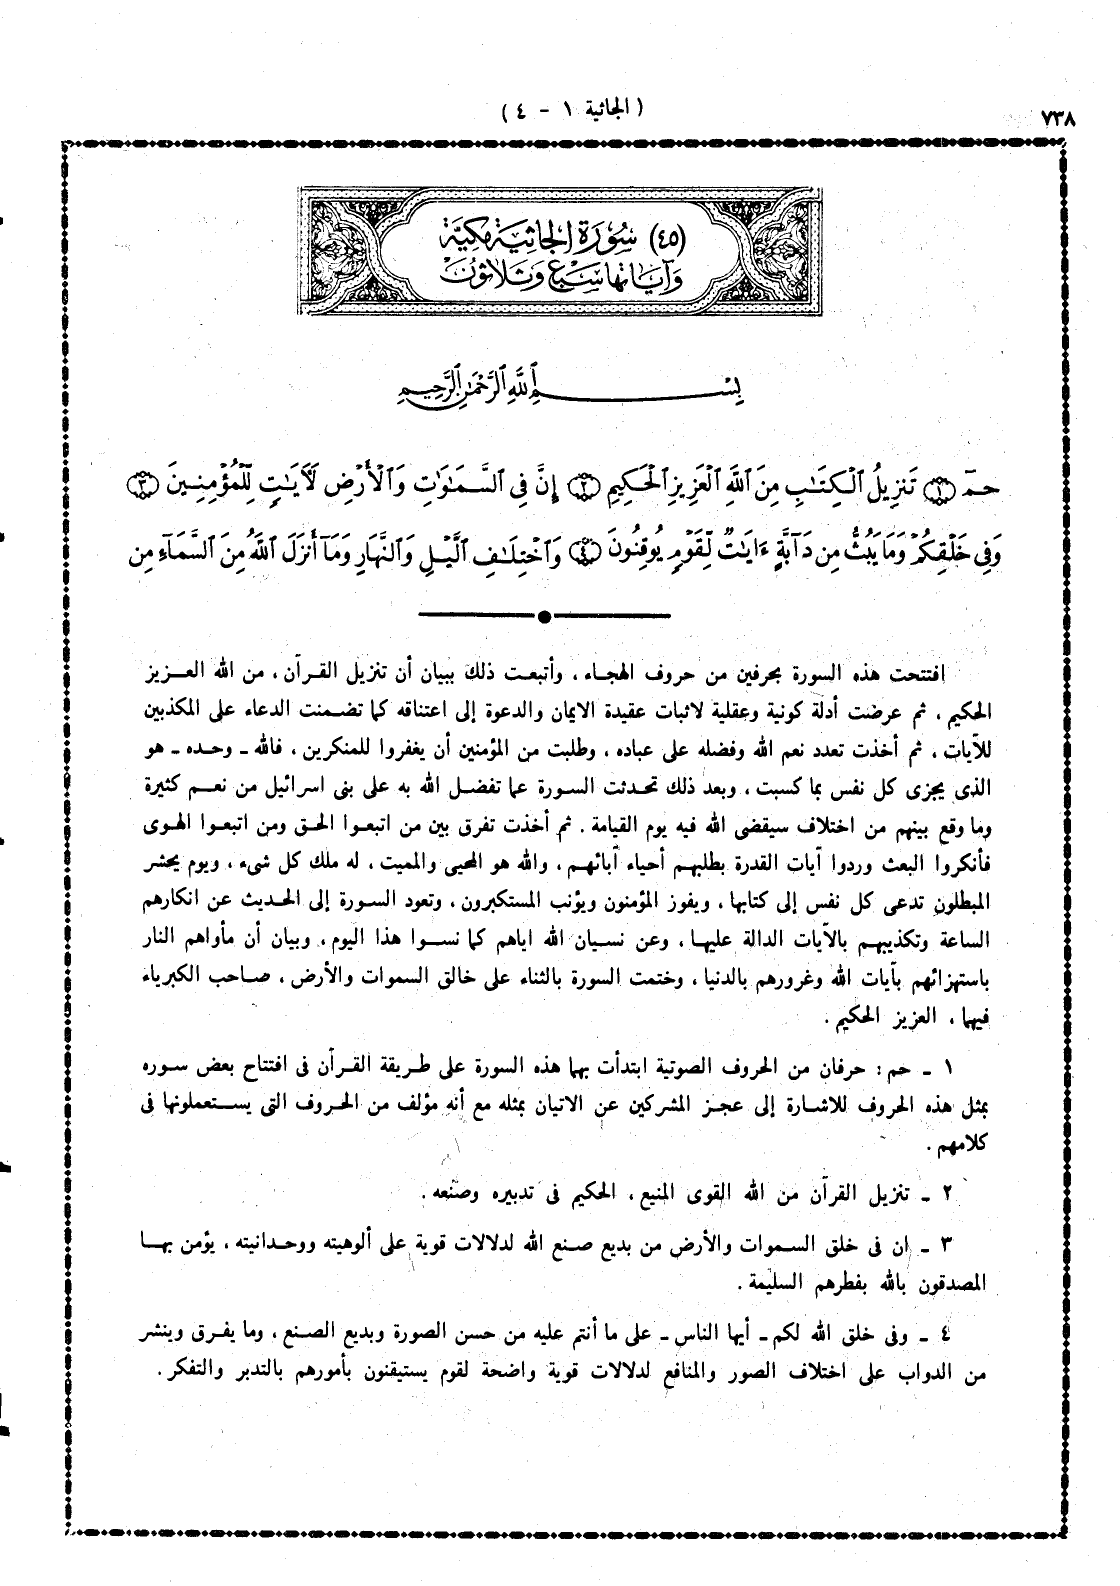 ٧٣٨
( الجاثية ١ - ٤ )
(٤٥) سُورَة الجَاثِيَة مَكِيَّة
وَآيَاتُهَا سَبْع وَثَلَاثُونْ
بِسْمِ ٱللَّهِ ٱلرَّحْمَٰنِ ٱلرَّحِيمِ
حمٓ ﴿١﴾ تَنزِيلُ ٱلْكِتَٰبِ مِنَ ٱللَّهِ ٱلْعَزِيزِ ٱلْحَكِيمِ ﴿٢﴾ إِنَّ فِي ٱلسَّمَٰوَٰتِ وَٱلْأَرْضِ لَءَايَٰتٍ لِّلْمُؤْمِنِينَ ﴿٣﴾
وَفِي خَلْقِكُمْ وَمَا يَبُثُّ مِن دَآبَّةٍ ءَايَٰتٌ لِّقَوْمٍ يُوقِنُونَ ﴿٤﴾ وَٱخْتِلَٰفِ ٱلَّيْلِ وَٱلنَّهَارِ وَمَآ أَنزَلَ ٱللَّهُ مِنَ ٱلسَّمَآءِ مِن
افتتحت هذه السورة بحرفين من حروف الهجاء ، وأتبعت ذلك ببيان أن تنزيل القرآن ، من الله العزيز
الحكيم ، ثم عرضت أدلة كونية وعقلية لاثبات عقيدة الايمان والدعوة إلى اعتناقه كما تضمنت الدعاء على المكذبين
للآيات ، ثم أخذت تعدد نعم الله وفضله على عباده ، وطلبت من المؤمنين أن يغفروا للمنكرين ، فالله ـ وحده ـ هو
الذى يجزى كل نفس بما كسبت ، وبعد ذلك تحدثت السورة عما تفضل الله به على بنى اسرائيل من نعم كثيرة
وما وقع بينهم من اختلاف سيقضى الله فيه يوم القيامة . ثم أخذت تفرق بين من اتبعوا الحق ومن اتبعوا الهوى
فأنكروا البعث وردوا آيات القدرة بطلبهم أحياء آبائهم ، والله هو المحيى والمميت ، له ملك كل شىء ، ويوم يحشر
المبطلون تدعى كل نفس إلى كتابها ، ويفوز المؤمنون ويؤنب المستكبرون ، وتعود السورة إلى الحديث عن انكارهم
الساعة وتكذيبهم بالآيات الدالة عليها ، وعن نسيان الله اياهم كما نسوا هذا اليوم ، وبيان أن مأواهم النار
باستهزائهم بآيات الله وغرورهم بالدنيا ، وختمت السورة بالثناء على خالق السموات والأرض ، صاحب الكبرياء
فيهما ، العزيز الحكيم .
١ ـ حم : حرفان من الحروف الصوتية ابتدأت بهما هذه السورة على طريقة القرآن فى افتتاح بعض سوره
بمثل هذه الحروف للاشارة إلى عجز المشركين عن الاتيان بمثله مع أنه مؤلف من الحروف التى يستعملونها فى
كلامهم .
٢ ـ تنزيل القرآن من الله القوى المنيع ، الحكيم فى تدبيره وصنعه .
٣ ـ إن فى خلق السموات والأرض من بديع صنع الله لدلالات قوية على ألوهيته ووحدانيته ، يؤمن بها
المصدقون بالله بفطرهم السليمة .
٤ ـ وفى خلق الله لكم ـ أيها الناس ـ على ما أنتم عليه من حسن الصورة وبديع الصنع ، وما يفرق وينشر
من الدواب على اختلاف الصور والمنافع لدلالات قوية واضحة لقوم يستيقنون بأمورهم بالتدبر والتفكر .